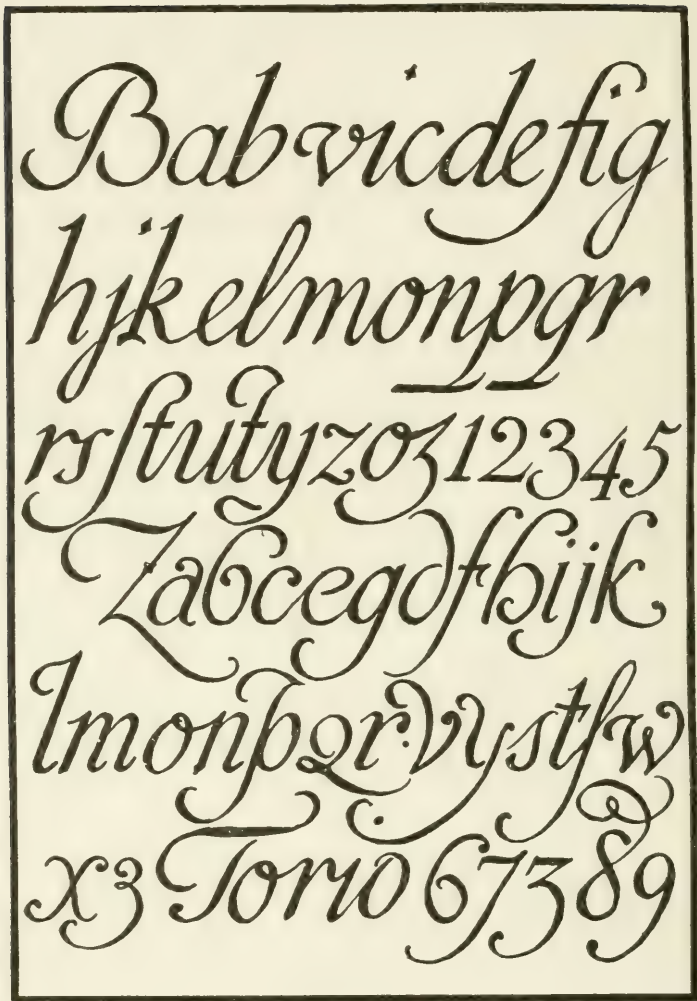 Babvicdefig
hjkelmonpqr
rsſtutyzoz12345
Zabcegdfhijk
lmonpqr.vystſw
xz Torio 67389